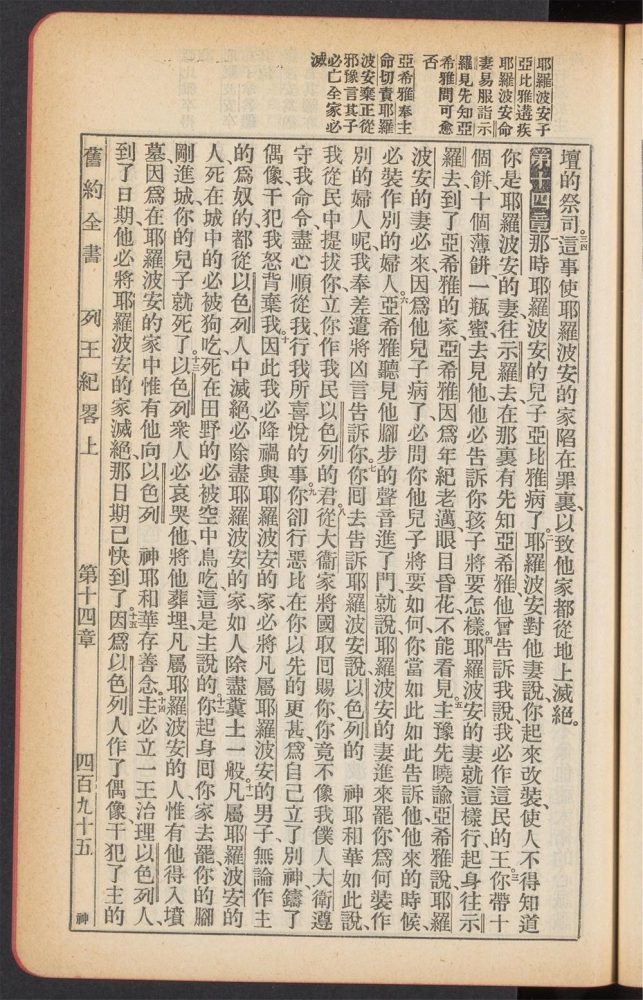 耶羅波安子
亞比雅遘疾
耶羅波安命
妻易服詣示
羅見先知亞
希雅問可愈
否
亞希雅奉主
命切責耶羅
波安棄正從
邪豫言其子
必亡全家必
滅
壇的祭司。三四這事使耶羅波安的家陷在罪裏、以致他家都從地上滅絕。
第十四章一那時耶羅波安的兒子亞比雅病了。二耶羅波安對他妻說、你起來改裝、使人不得知道
你是耶羅波安的妻、往示羅去、在那裏有先知亞希雅、他曾告訴我說、我必作這民的王。三你帶十
個餅、十個薄餅、一瓶蜜、去見他、他必告訴你孩子將要怎樣。四耶羅波安的妻就這樣行、起身往示
羅去、到了亞希雅的家、亞希雅因爲年紀老邁、眼目昏花、不能看見。五主豫先曉諭亞希雅說、耶羅
波安的妻必來、因爲他兒子病了、必問你他兒子將要如何、你當如此如此告訴他、他來的時候、
必裝作別的婦人。六亞希雅聽見他腳步的聲音進了門、就說、耶羅波安的妻、進來罷、你爲何裝作
別的婦人呢、我奉差遣將凶言告訴你。七你囘去告訴耶羅波安說、以色列的 神耶和華如此說、
我從民中提拔你、立你作我民以色列的君。八從大衞家將國取囘賜你、你竟不像我僕人大衞遵
守我命令、盡心順從我、行我所喜悅的事。九你卻行惡、比在你以先的更甚、爲自己立了別神、鑄了
偶像、干犯我怒、背棄我。十因此我必降禍與耶羅波安的家、必將凡屬耶羅波安的男子、無論作主
的爲奴的、都從以色列人中滅絕、必除盡耶羅波安的家、如人除盡糞土一般。十一凡屬耶羅波安的
人、死在城中的必被狗吃、死在田野的必被空中鳥吃、這是主說的。十二你起身囘你家去罷、你的腳
剛進城、你的兒子就死了。十三以色列衆人必哀哭他、將他葬埋、凡屬耶羅波安的人、惟有他得入墳
墓、因爲在耶羅波安的家中、惟有他向以色列 神耶和華存善念。十四主必立一王治理以色列人、
到了日期、他必將耶羅波安的家滅絕、那日期已快到了。十五因爲以色列人作了偶像、干犯了主的
舊約全書 列王紀畧上 第十四章 四百九十五 神